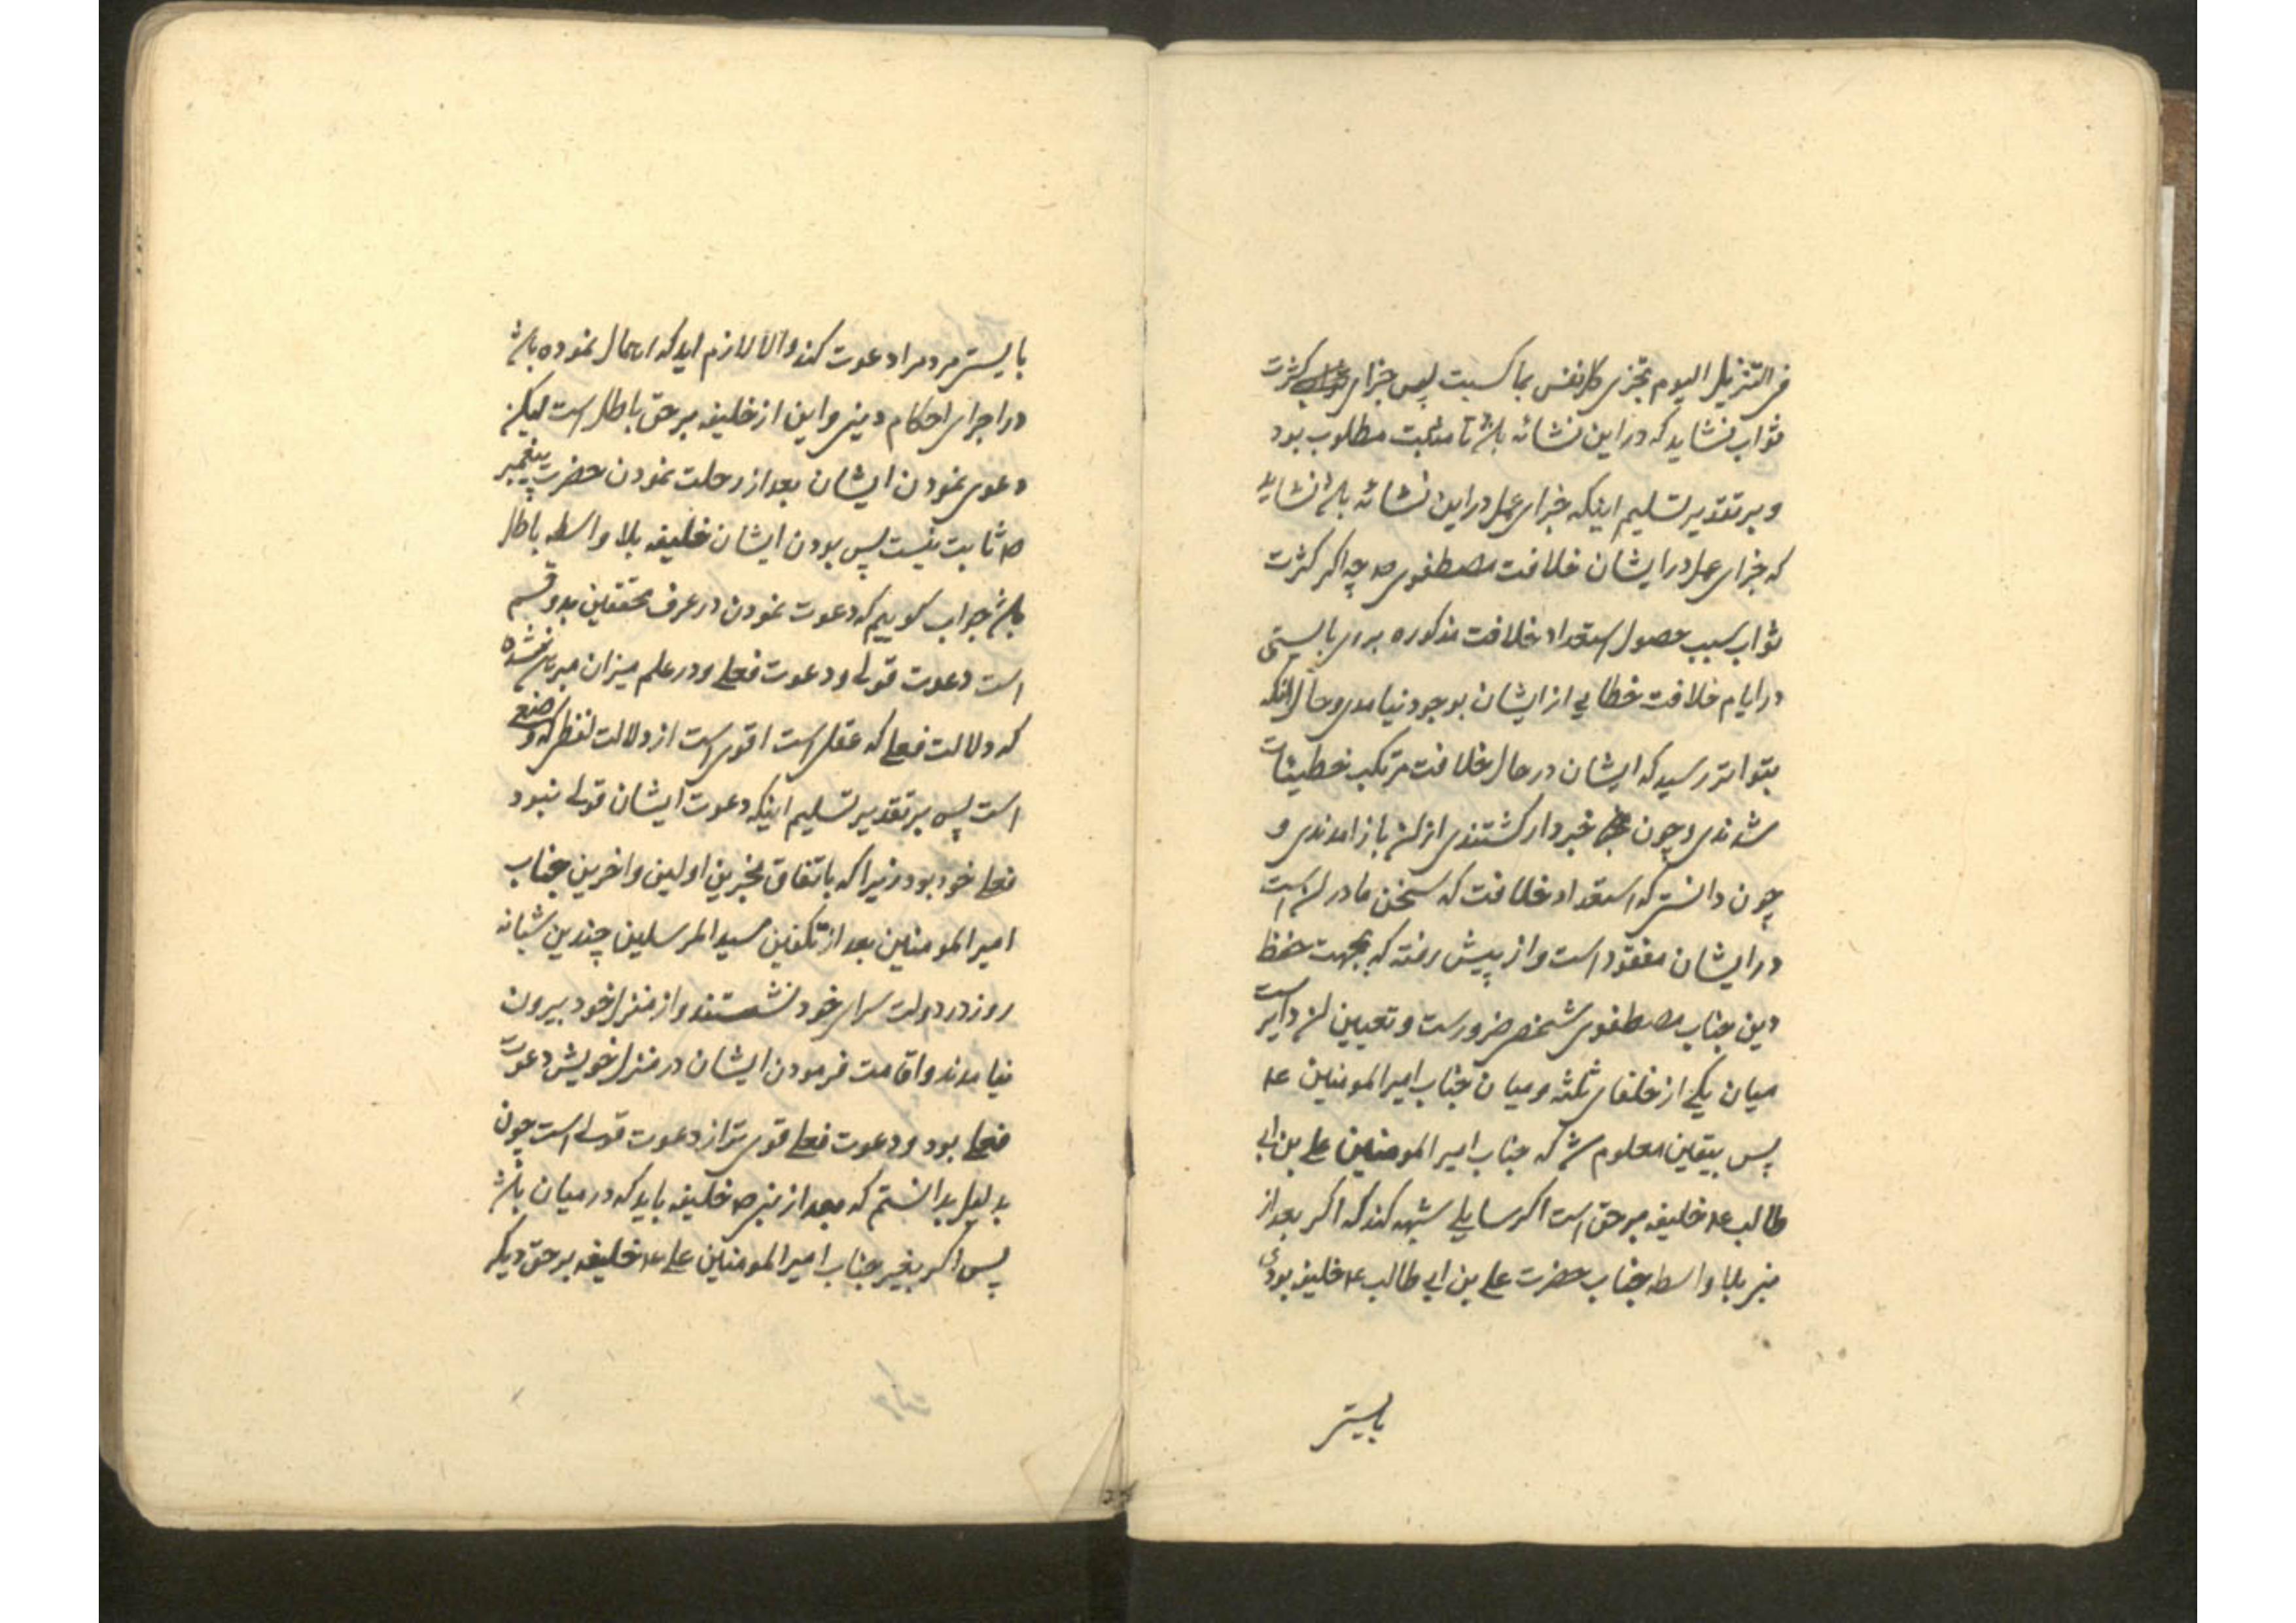 فی التنزیل الیوم تجزی کل نفس بما کسبت پس جزای کثرت
ثواب نشاید که در این نشائه باشد تا مثبت مطلوب بود
و بر تقدیر تسلیم اینکه جزای عمل در این نشائه باشد نشاید
که جزای عمل در ایشان خلافت مصطفوی ص چه اکر کثرت
ثواب سبب حصول استعداد خلافت مذکوره بودی بایستی
در ایام خلافت خطایی از ایشان بوجود نیامدی و حال آنکه
بتواتر رسید که ایشان در حال خلافت مرتکب خطیئات
شدندی و چون خبردار کشتندی از آن باز آمدندی و
چون دانستی که استعداد خلافت که سخن ما در آن است
در ایشان مفقود است و از پیش رفته که بجهت حفظ
دین جناب مصطفوی شخصی ضرورست و تعیین آن دایر است
میان یکی از خلفای ثلثه و میان جناب امیر المومنین ع
پس بیقین معلوم شد که جناب امیر المومنین علی بن ابی
طالب ع خلیفه بر حق است اکر سایلی شبهه کند که اکر بعد از
نبی بلا واسطه جناب حضرت علی بن ابی طالب ع خلیفه بودی
بایستی
بایستی مردم را دعوت کند و الا لازم اید که اهمال نموده باشد
در اجرای احکام دینی و این از خلیفه بر حق باطل است لیکن
دعوی نمودن ایشان بعد از رحلت نمودن حضرت پیغمبر
ص ثابت نیست پس بودن ایشان خلیفه بلا واسطه باطل
باشد جواب کوییم که دعوت نمودن در عرف محققین بدو قسم
است دعوت قولی و دعوت فعلی و در علم میزان مبرهن شده
که دلالت فعلی که عقلی است اقوی است از دلالت لفظی که وضعی
است پس بر تقدیر تسلیم اینکه دعوت ایشان قولی نبود
فعلی خود بود زیرا که باتفاق مخبرین اولین و اخرین جناب
امیر المومنین بعد از تکفین سید المرسلین چندین شبانه
روز در دولت سرای خود نشستند و از منزل خود بیرون
نیامدند و اقامت فرمودن ایشان در منزل خویش دعوت
فعلی بود و دعوت فعلی قوی تر از دعوت قولی است چون
بدلیل بدانستم که بعد از نبی ص خلیفه باید که در میان باشد
پس اکر بغیر جناب امیر المومنین علی ع خلیفه بر حق دیکر